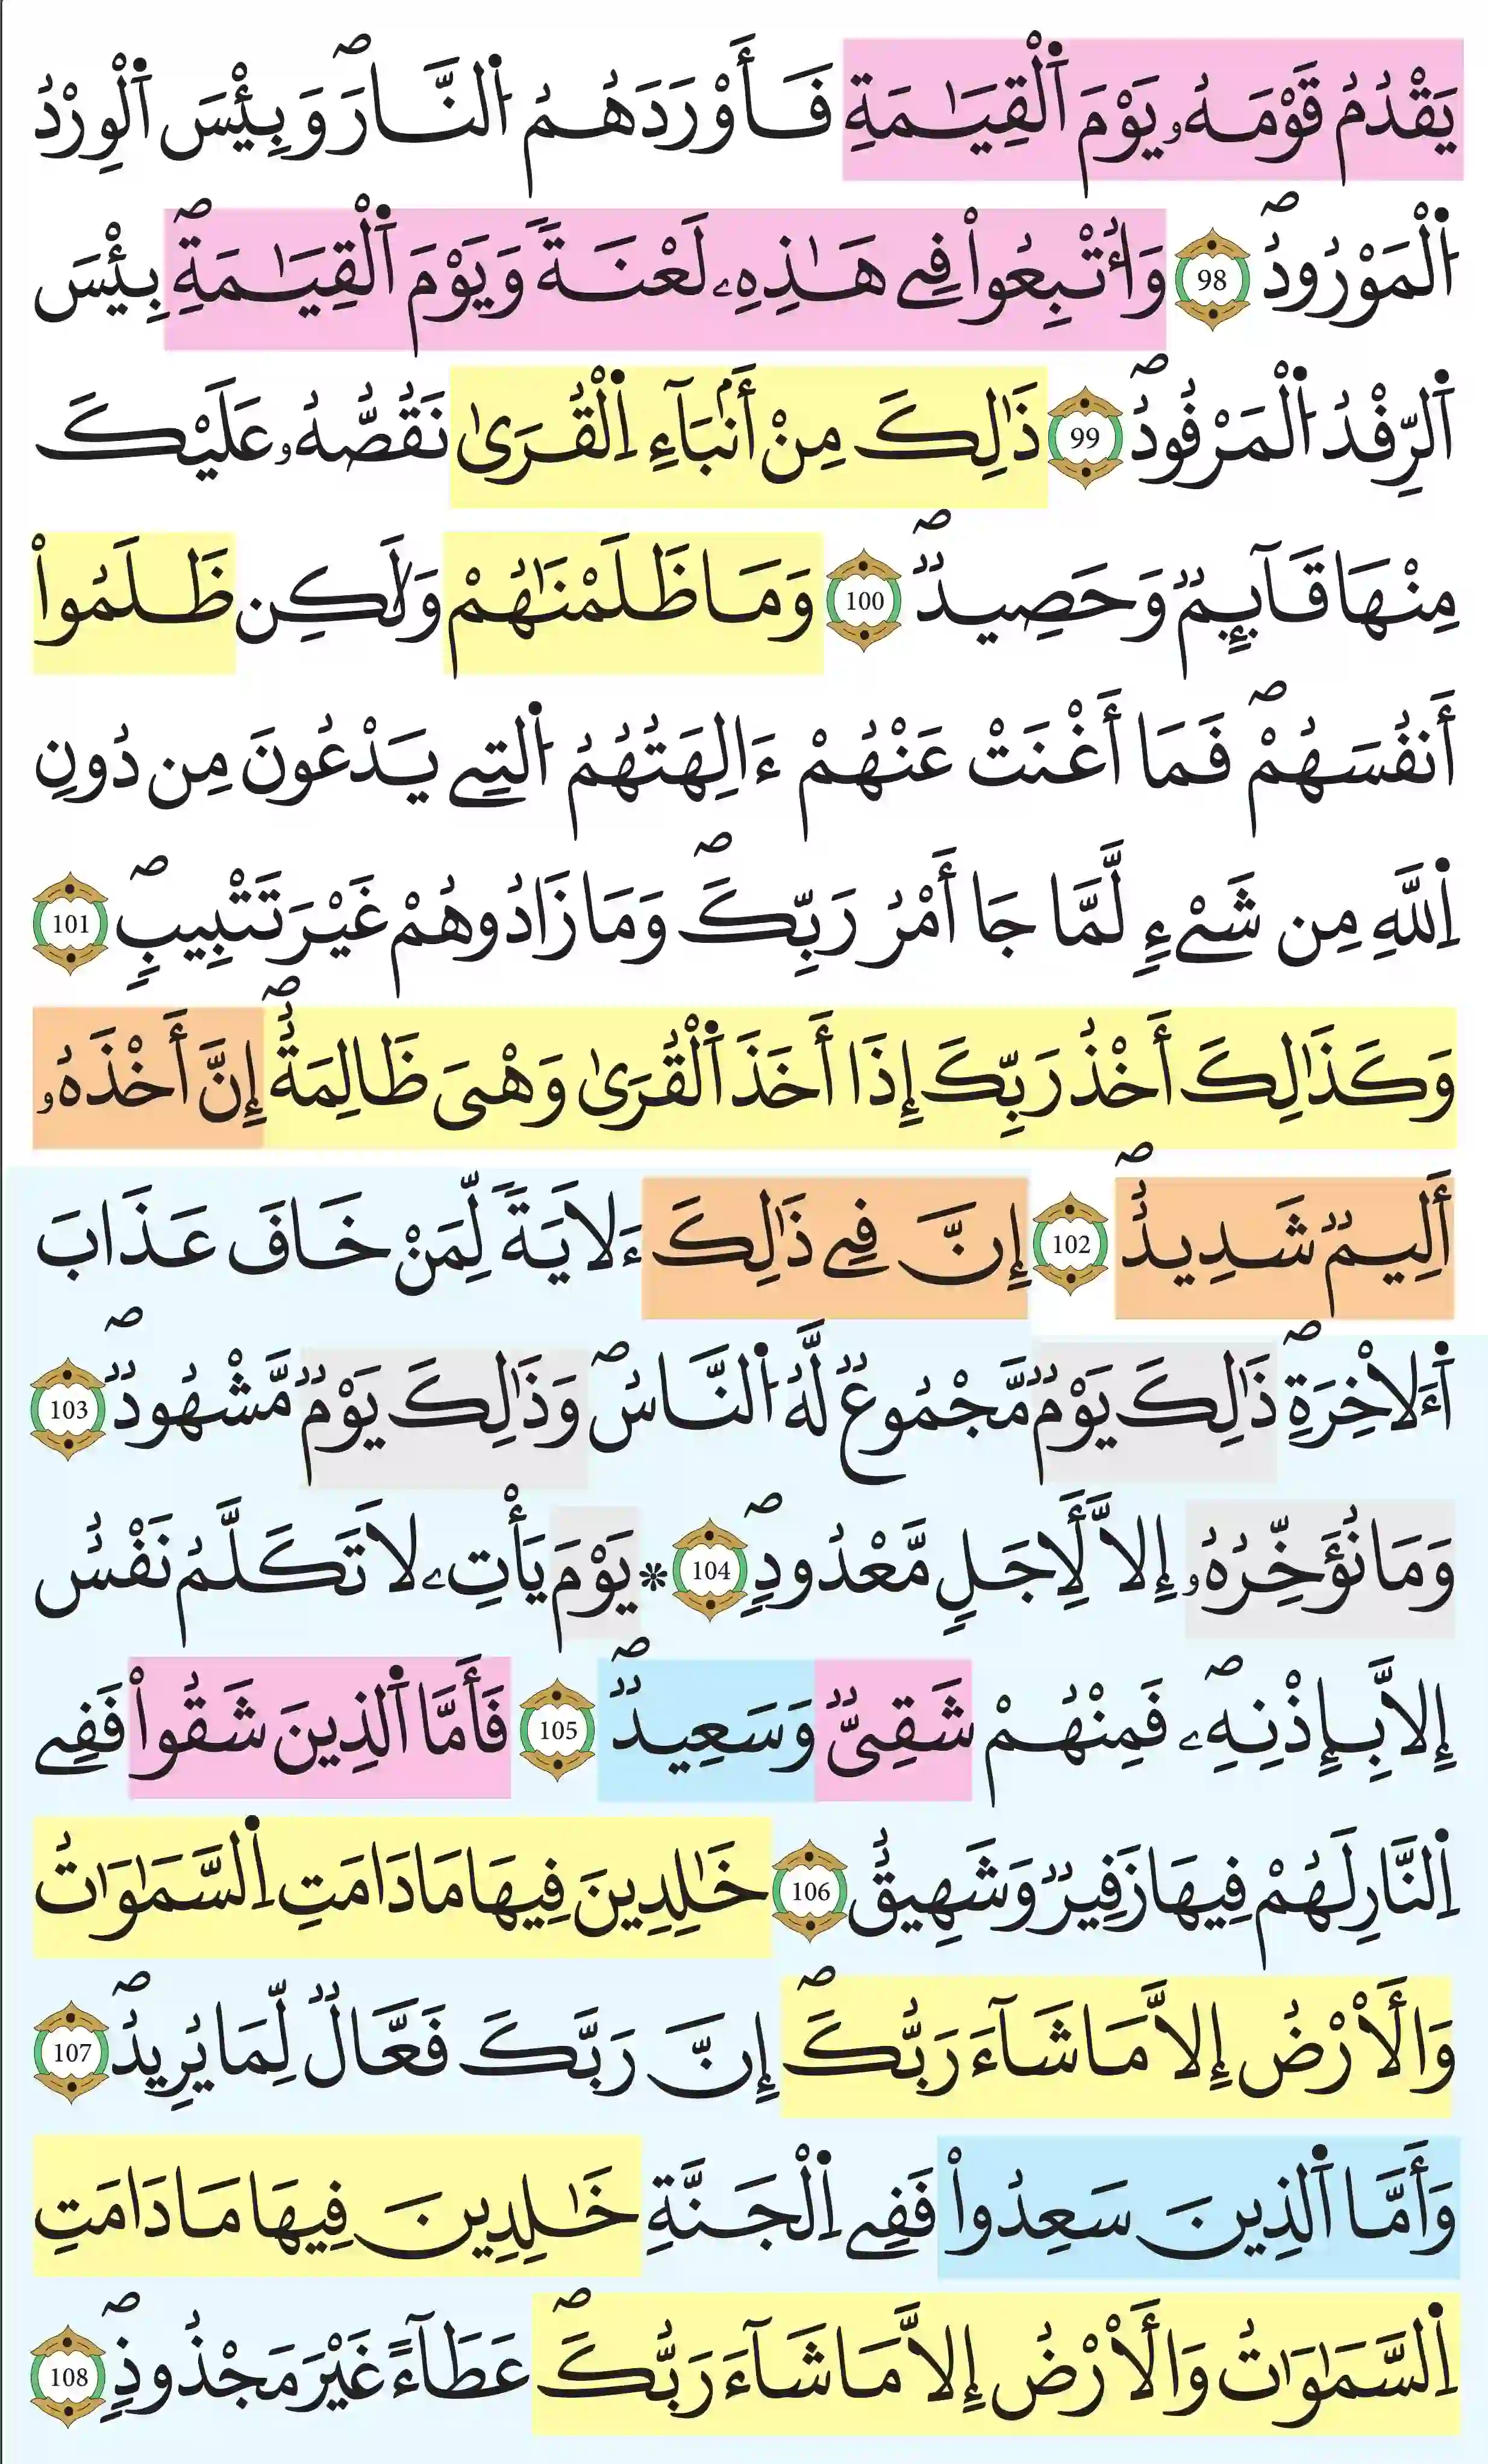 يَقْدُمُ قَوْمَهُۥ يَوْمَ اَ۬لْقِيَٰمَةِ فَأَوْرَدَهُمُ اُ۬لنَّارَۖ وَبِئْسَ اَ۬لْوِرْدُ
اُ۬لْمَوْرُودُۖ 98 وَأُتْبِعُواْ فِے هَٰذِهِۦ لَعْنَةٗ وَيَوْمَ اَ۬لْقِيَٰمَةِۖ بِئْسَ
اَ۬لرِّفْدُ اُ۬لْمَرْفُودُۖ 99 ذَٰلِكَ مِنْ أَنۢبَآءِ اِ۬لْقُر۪يٰ نَقُصُّهُۥ عَلَيْكَ
مِنْهَا قَآئِمٞ وَحَصِيدٞۖ 100 وَمَا ظَلَمْنَٰهُمْ وَلَٰكِن ظَلَمُواْ
أَنفُسَهُمْۖ فَمَا أَغْنَتْ عَنْهُمْ ءَالِهَتُهُمُ اُ۬لتِے يَدْعُونَ مِن دُونِ
اِ۬للَّهِ مِن شَےْءٖ لَّمَّا جَا أَمْرُ رَبِّكَۖ وَمَا زَادُوهُمْ غَيْرَ تَتْبِيبٖۖ 101
وَكَذَٰلِكَ أَخْذُ رَبِّكَ إِذَا أَخَذَ اَ۬لْقُر۪يٰ وَهْيَ ظَالِمَةٌۖ إِنَّ أَخْذَهُۥ
أَلِيمٞ شَدِيدٌۖ 102 إِنَّ فِے ذَٰلِكَ ءَلَايَةٗ لِّمَنْ خَافَ عَذَابَ
اَ۬ءَلَاخِرَةِۖ ذَٰلِكَ يَوْمٞ مَّجْمُوعٞ لَّهُ اُ۬لنَّاسُۖ وَذَٰلِكَ يَوْمٞ مَّشْهُودٞۖ 103
وَمَا نُؤَخِّرُهُۥ إِلَّا لِأَجَلٖ مَّعْدُودٖۖ 104 * يَوْمَ يَأْتِۦ لَا تَكَلَّمُ نَفْسٌ
إِلَّا بِإِذْنِهِۦۖ فَمِنْهُمْ شَقِيّٞ وَسَعِيدٞۖ 105 فَأَمَّا اَ۬لذِينَ شَقُواْ فَفِے
اِ۬لنَّارِ لَهُمْ فِيهَا زَفِيرٞ وَشَهِيقٌ 106 خَٰلِدِينَ فِيهَا مَا دَامَتِ اِ۬لسَّمَٰوَٰتُ
وَالْأَرْضُ إِلَّا مَا شَآءَ رَبُّكَۖ إِنَّ رَبَّكَ فَعَّالٞ لِّمَا يُرِيدُۖ 107
وَأَمَّا اَ۬لذِينَ سَعِدُواْ فَفِے اِ۬لْجَنَّةِ خَٰلِدِينَ فِيهَا مَا دَامَتِ
اِ۬لسَّمَٰوَٰتُ وَالْأَرْضُ إِلَّا مَا شَآءَ رَبُّكَۖ عَطَآءً غَيْرَ مَجْذُوذٖۖ 108